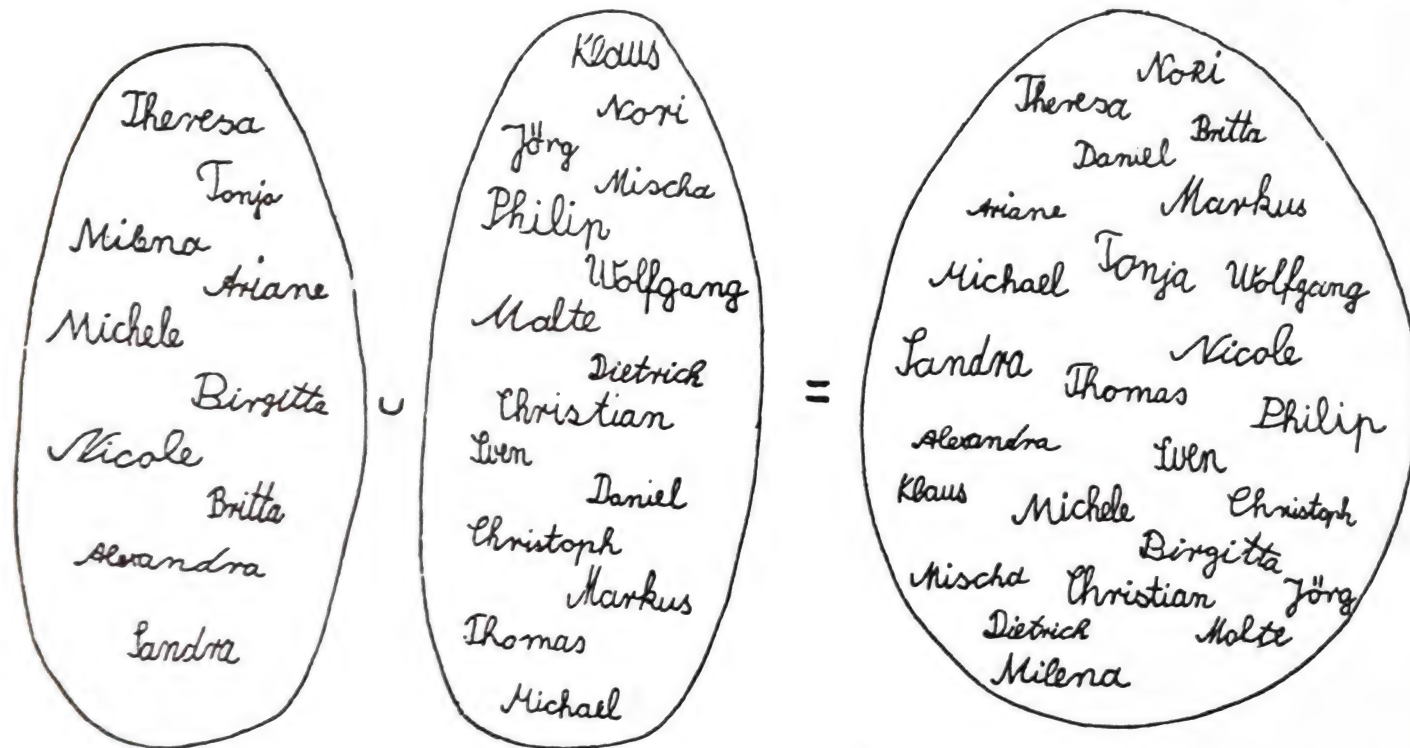 Theresa
Tonja
Milena
Ariane
Michele
Birgitta
Nicole
Britta
Alexandra
Sandra
∪
Klaus
Nori
Jörg
Mischa
Philip
Wolfgang
Malte
Dietrich
Christian
Sven
Daniel
Christoph
Markus
Thomas
Michael
=
Nori
Theresa
Britta
Daniel
Ariane Markus
Michael Tonja Wolfgang
Sandra Nicole
Thomas Philip
Alexandra Sven
Klaus Michele Christoph
Birgitta
Mischa Christian Jörg
Dietrich Malte
Milena